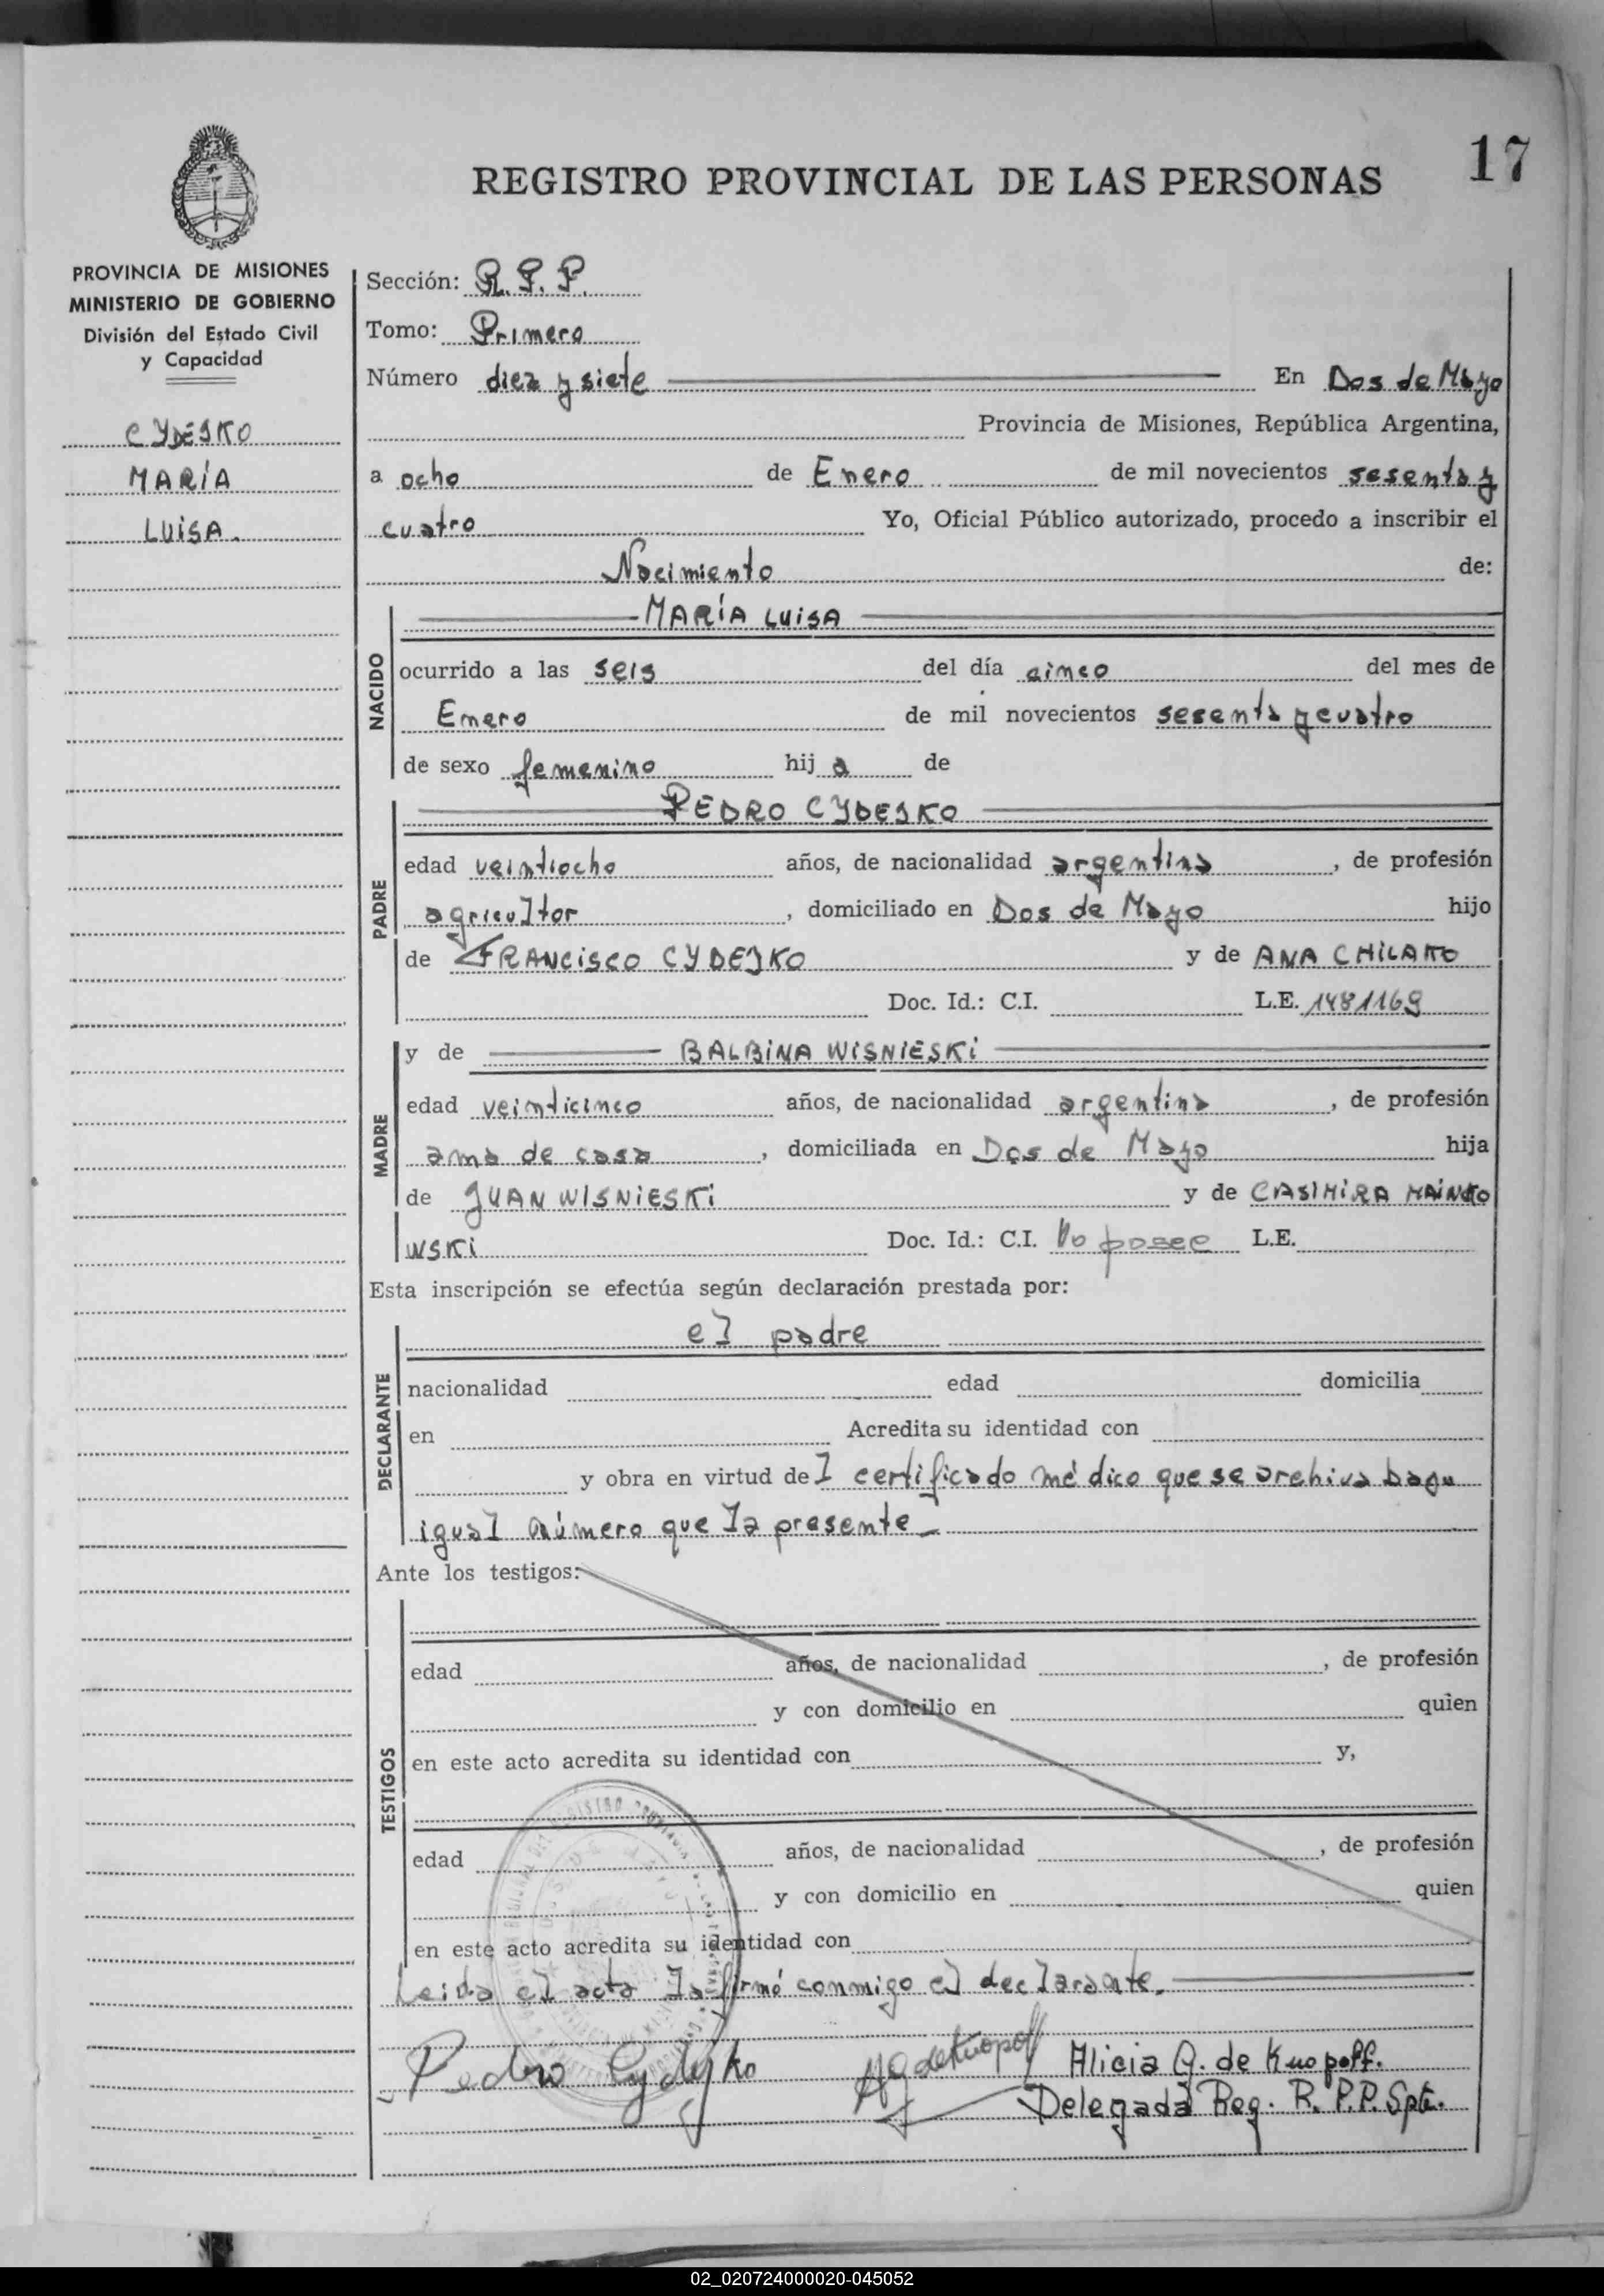 17
REGISTRO PROVINCIAL DE LAS PERSONAS
PROVINCIA DE MISIONES
MINISTERIO DE GOBIERNO
División del Estado Civil
y Capacidad
CYDEJKO
MARÍA
LUISA.
Sección: R.P.P.
Tomo: Primero
Número diez y siete En Dos de Mayo
Provincia de Misiones, República Argentina,
a ocho de Enero de mil novecientos sesenta y
cuatro Yo, Oficial Público autorizado, procedo a inscribir el
Nacimiento de:
NACIDO
MARÍA LUISA
ocurrido a las seis del día cinco del mes de
Enero de mil novecientos sesenta y cuatro
de sexo femenino hij a de
PADRE
PEDRO CYDEJKO
edad veintiocho años, de nacionalidad argentina, de profesión
agricultor, domiciliado en Dos de Mayo hijo
de FRANCISCO CYDEJKO y de ANA CHILAKO
Doc. Id.: C.I. L.E. 1481169
MADRE
y de BALBINA WISNIESKI
edad veinticinco años, de nacionalidad argentina, de profesión
ama de casa, domiciliada en Dos de Mayo hija
de JUAN WISNIESKI y de CASIMIRA
WSKI Doc. Id.: C.I. No posee L.E.
Esta inscripción se efectúa según declaración prestada por:
DECLARANTE
el padre
nacionalidad edad domicilia
en Acredita su identidad con
y obra en virtud de l certificado médico que se archiva bajo
igual número que la presente_
Ante los testigos:
TESTIGOS
edad años, de nacionalidad , de profesión
y con domicilio en quien
en este acto acredita su identidad con y,
edad años, de nacionalidad , de profesión
y con domicilio en quien
en este acto acredita su identidad con
Leida el acta la firmó conmigo el declarante.
Pedro Cydejko AGdeKuopoff Alicia G. de Kuopoff.
Delegada Reg. R.P.P. Spte.
02_020724000020-045052